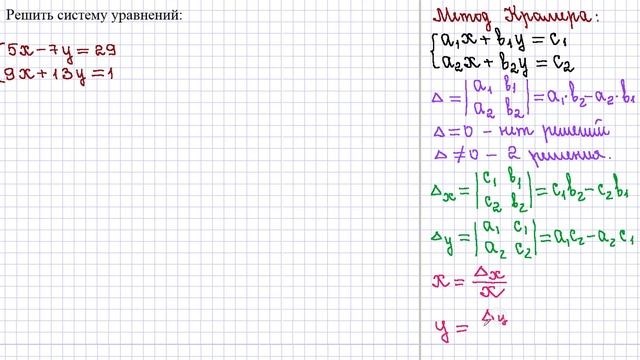 Решить систему уравнений:
5x-7y=29
9x+13y=1
Метод Крамера:
a₁x+b₁y=c₁
a₂x+b₂y=c₂
Δ=|a₁ b₁|=a₁·b₂-a₂·b₁
|a₂ b₂|
Δ=0 - нет решений
Δ≠0 - 2 решения.
Δx=|c₁ b₁|=c₁b₂-c₂b₁
|c₂ b₂|
Δy=|a₁ c₁|=a₁c₂-a₂c₁
|a₂ c₂|
x=Δx/x
y=Δy